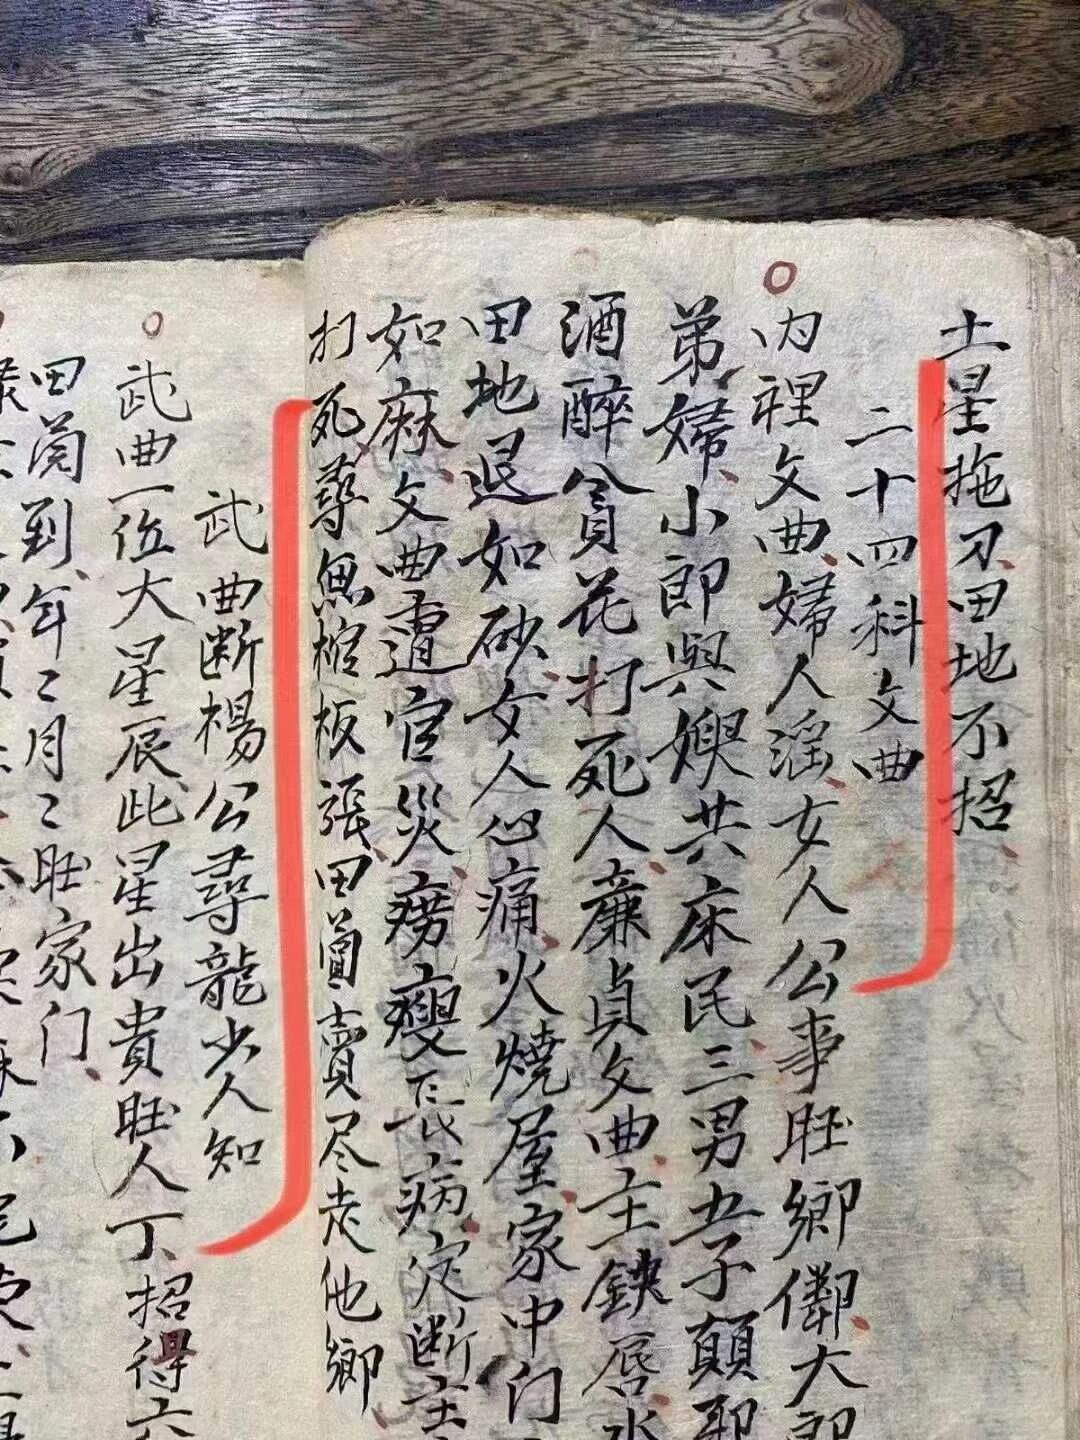 土星拖刀田地不招
二十四科文曲
内裡文曲婦人滛女人公事旺鄉鄰大郎
弟婦小郎與嫂共床民三男五子顛
酒醉貪花打死人亷貞文曲主鉄唇水
田地退如砂女人心痛火燒屋家中门
如麻文曲遭官災痨瘦長病定断主
打死尋魚棺板張田園賣尽走他鄉
武曲断楊公尋龍少人知
武曲一位大星辰此星出貴旺人丁招得六
田園到年二月二旺家门